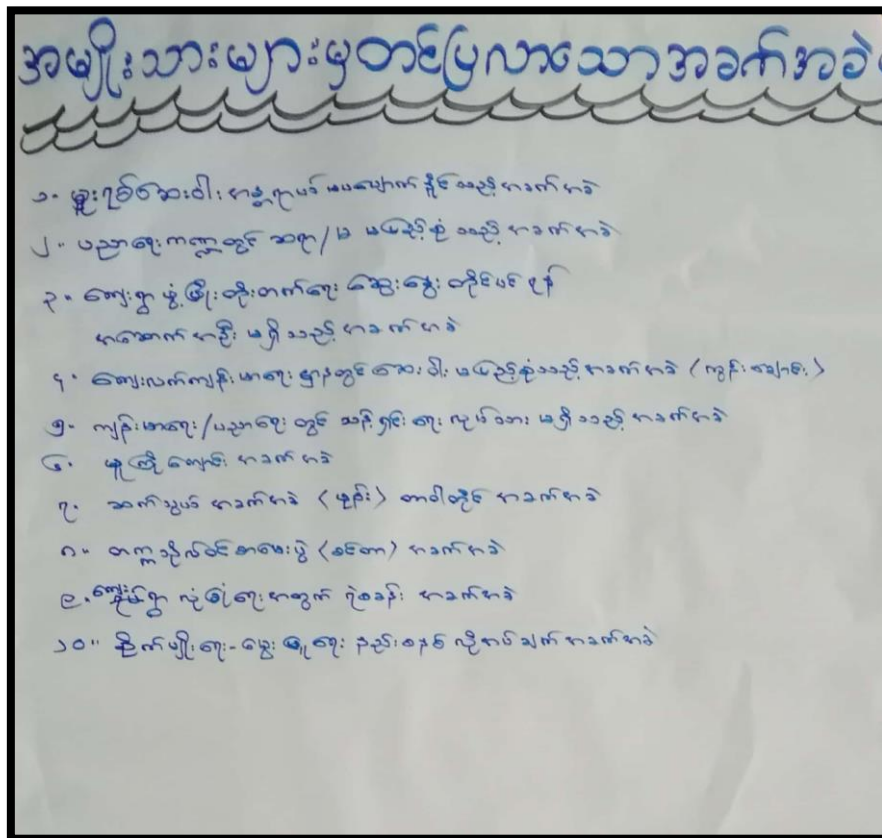 အမျိုးသားများမှတင်ပြလာသောအခက်အခဲ
၁။ မူးယစ်ဆေးဝါး အန္တရာယ် မပပျောက်နိုင်သည့် အခက်အခဲ
၂။ ပညာရေးကဏ္ဍတွင် ဆရာ/မ မပြည့်စုံသည့် အခက်အခဲ
၃။ ကျေးရွာ ဖွံ့ဖြိုးတိုးတက်ရေး ဆွေးနွေး တိုင်ပင်ရန်
အဆောက်အဦး မရှိသည့် အခက်အခဲ
၄။ ကျေးလက်ကျန်းမာရေးဌာနတွင် ဆေးဝါး မပြည့်စုံသည့် အခက်အခဲ (ကွန်းချောင်း)
၅။ ကျန်းမာရေး/ပညာရေး တွင် သန့်ရှင်းရေး လုပ်သား မရှိသည့် အခက်အခဲ
၆။ မူကြိုကျောင်း အခက်အခဲ
၇။ ဆက်သွယ် အခက်အခဲ (ဖုန်း) တာဝါတိုင် အခက်အခဲ
၈။ တက္ကသိုလ်ဝင်စာမေးပွဲ (စင်တာ) အခက်အခဲ
၉။ ကျေးရွာ လုံခြုံရေးအတွက် ရဲစခန်း အခက်အခဲ
၁၀။ စိုက်ပျိုးရေး-မွေးမြူရေး နည်းစနစ် လိုအပ်ချက် အခက်အခဲ